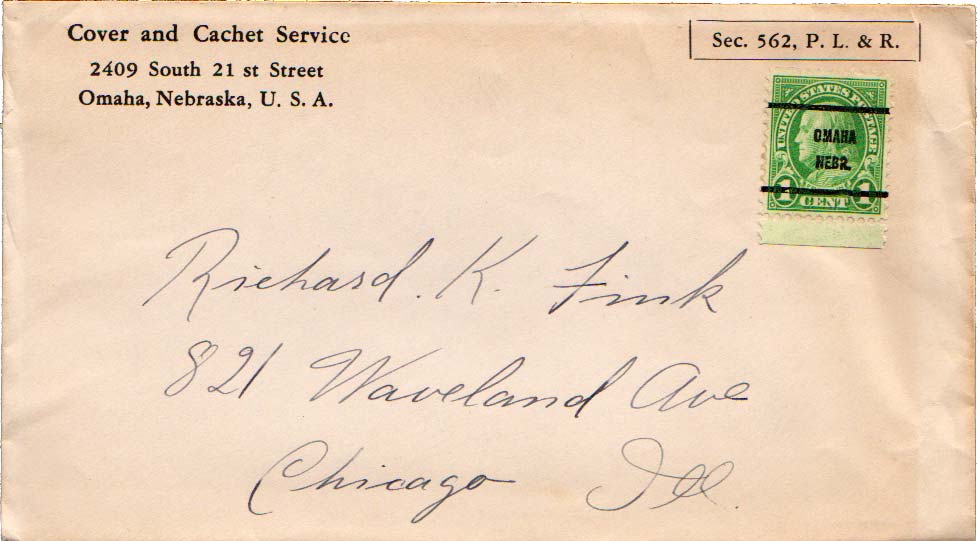 Cover and Cachet Service
2409 South 21 st Street
Omaha, Nebraska, U. S. A.
Sec. 562, P. L. & R.
UNITED STATES POSTAGE
OMAHA
NEBR.
1 CENT 1
Richard. K. Fink
821 Waveland Ave
Chicago Ill.